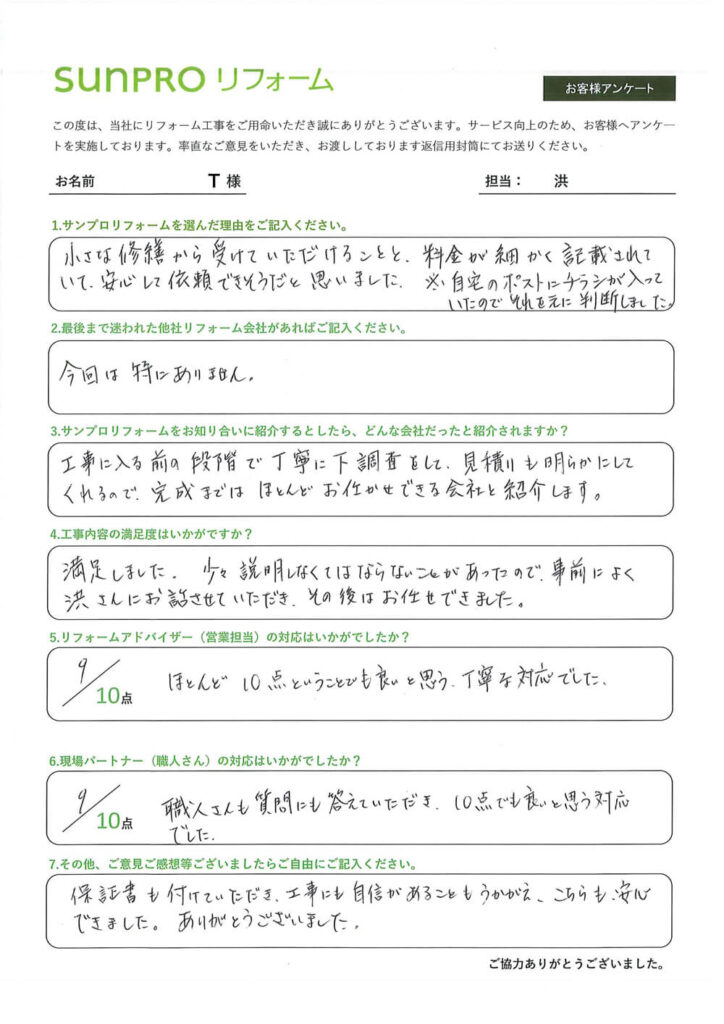 sunPRO リフォーム
お客様アンケート
この度は、当社にリフォーム工事をご用命いただき誠にありがとうございます。サービス向上のため、お客様へアンケー
トを実施しております。率直なご意見をいただき、お渡ししております返信用封筒にてお送りください。
お名前 T 様 担当： 洪
1.サンプロリフォームを選んだ理由をご記入ください。
小さな修繕から受けていただけることと、料金が細かく記載されて
いて、安心して依頼できそうだと思いました。 ※自宅のポストにチラシが入って
いたのでそれを元に判断しました。
2.最後まで迷われた他社リフォーム会社があればご記入ください。
今回は特にありません。
3.サンプロリフォームをお知り合いに紹介するとしたら、どんな会社だったと紹介されますか？
工事に入る前の段階で丁寧に下調査をして、見積りも明らかにして
くれるので、完成まではほとんどお任かせできる会社と紹介します。
4.工事内容の満足度はいかがですか？
満足しました。 少々説明しなくてはならないことがあったので、事前によく
洪さんにお話させていただき、その後はお任せできました。
5.リフォームアドバイザー（営業担当）の対応はいかがでしたか？
9/10点 ほとんど10点ということでも良いと思う、丁寧な対応でした。
6.現場パートナー（職人さん）の対応はいかがでしたか？
9/10点 職人さんも質問にも答えていただき、10点でも良いと思う対応
でした。
7.その他、ご意見ご感想等ございましたらご自由にご記入ください。
保証書も付けていただき、工事にも自信があることもうかがえ、こちらも、安心
できました。 ありがとうございました。
ご協力ありがとうございました。